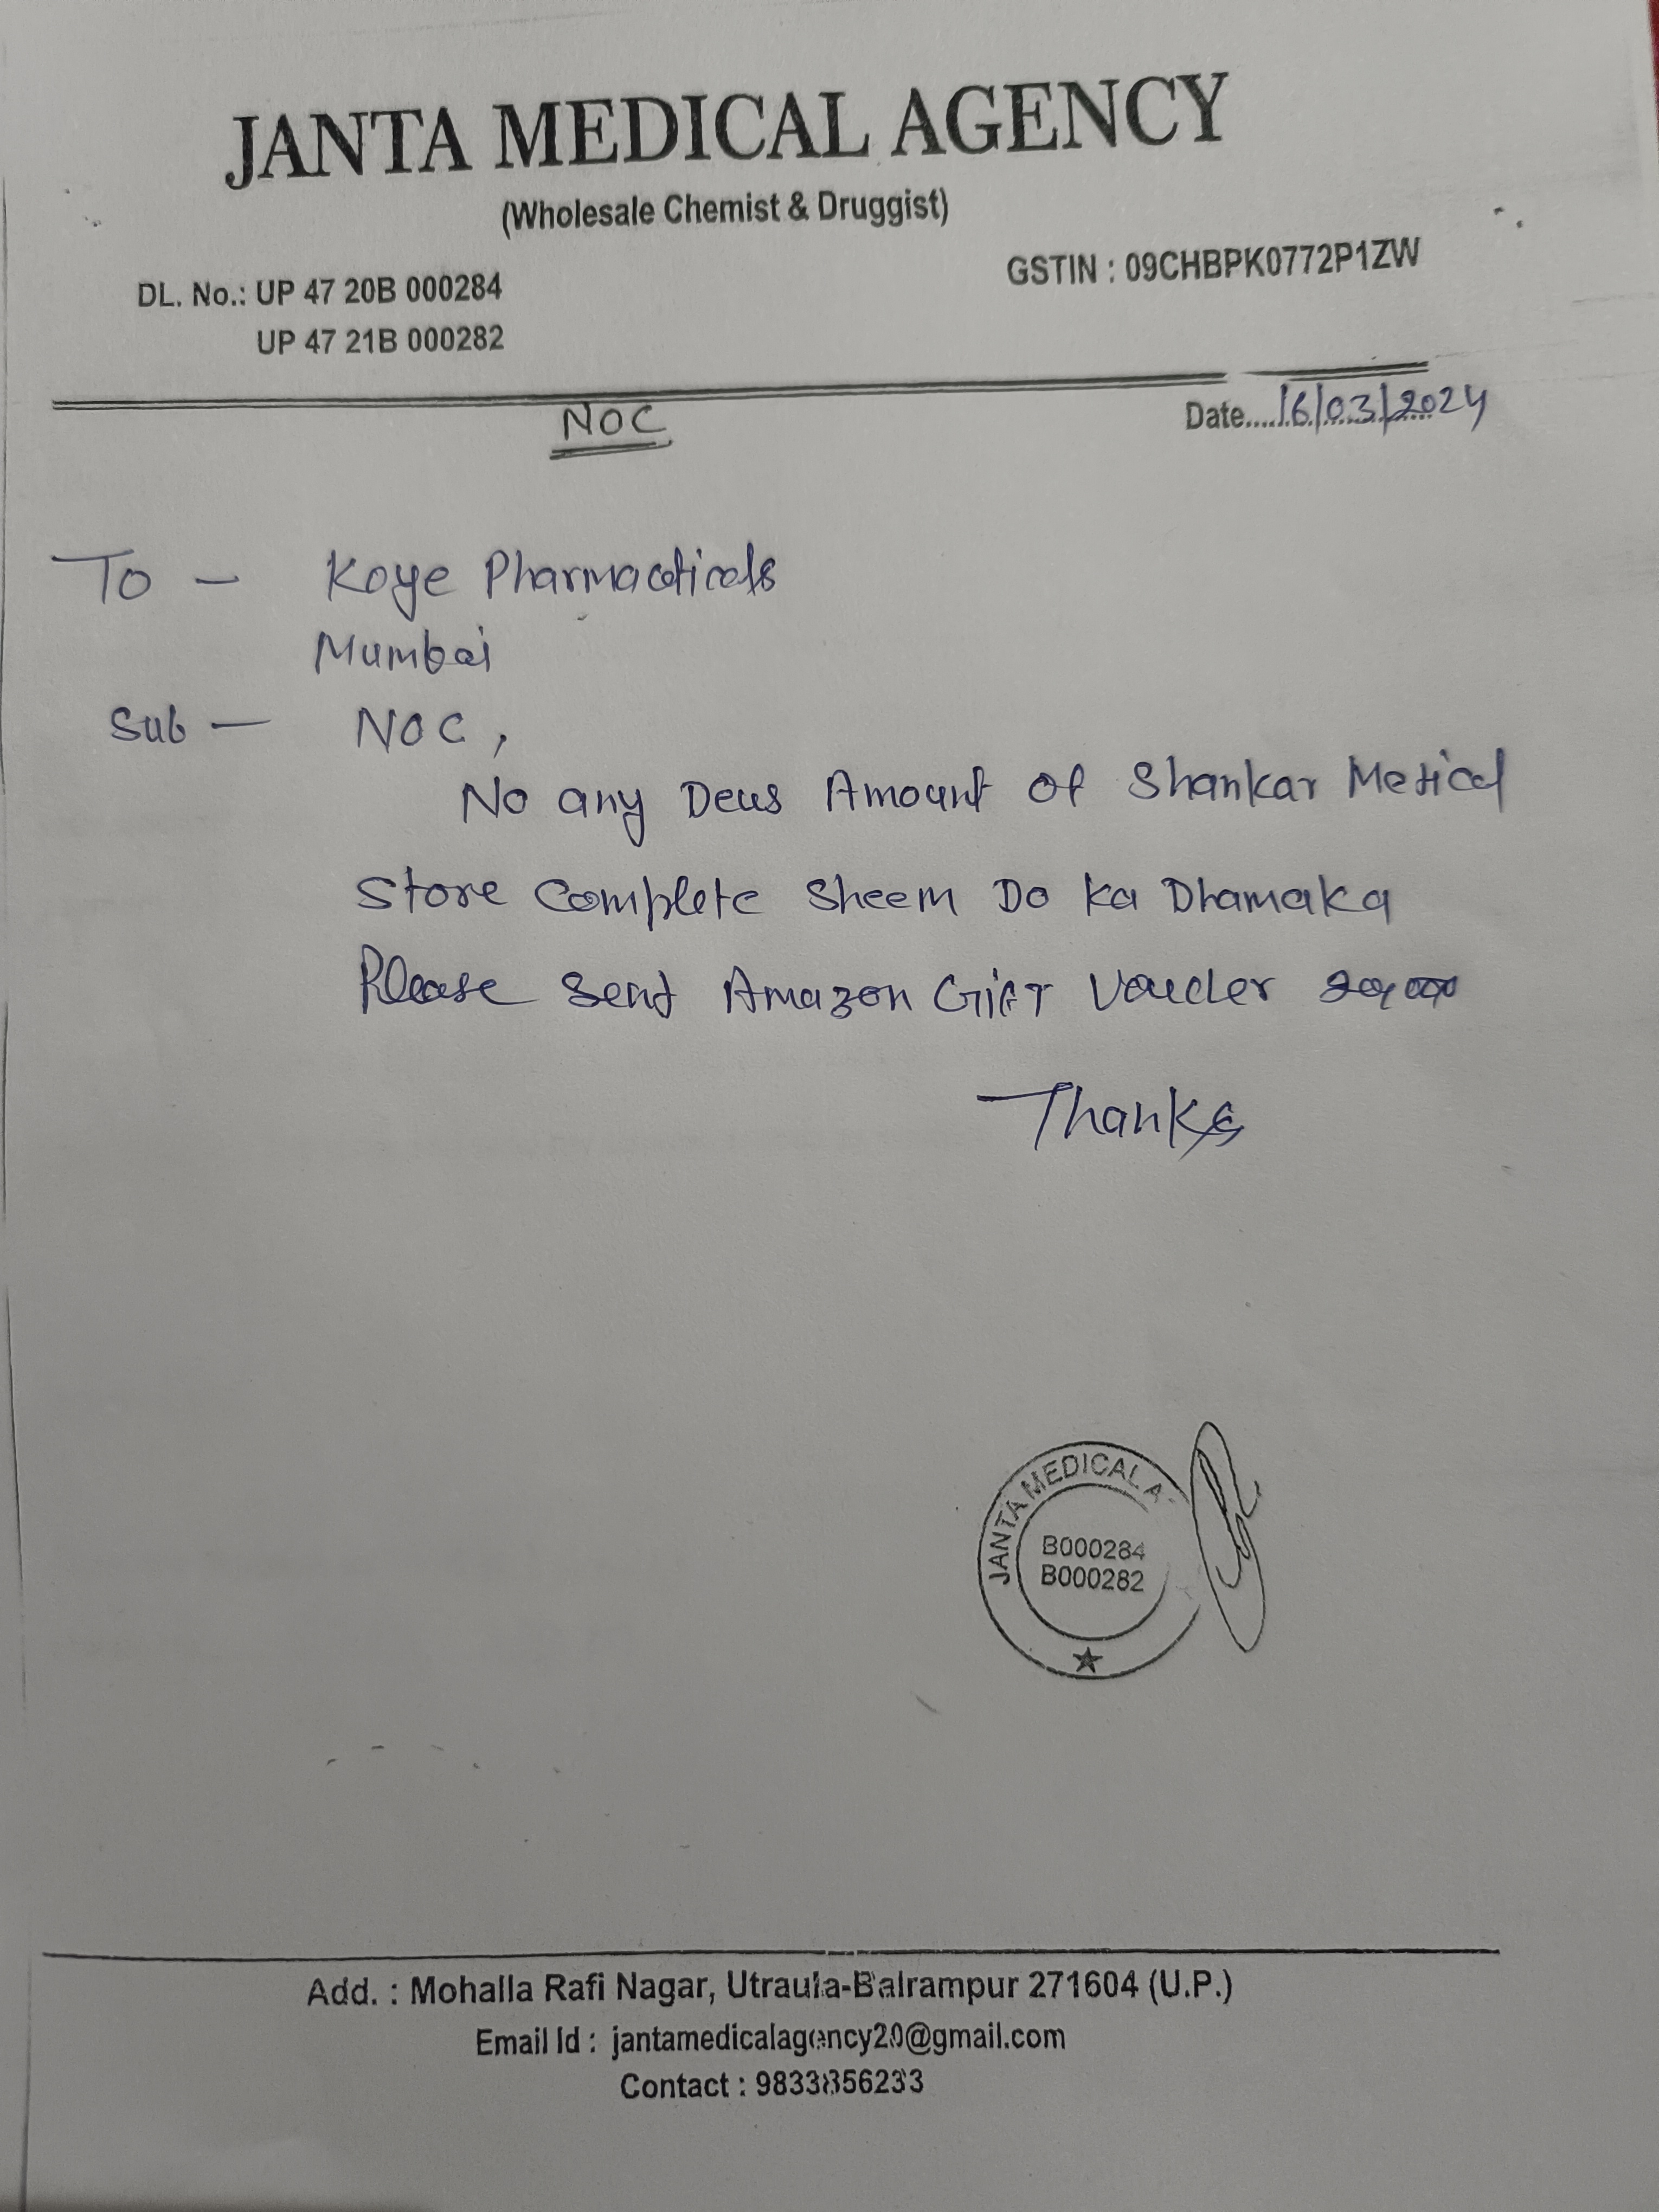 JANTA MEDICAL AGENCY
(Wholesale Chemist & Druggist)
DL. No.: UP 47 20B 000284
GSTIN : 09CHBPK0772P1ZW
UP 47 21B 000282
NOC
Date....16/03/2024
To - Koye Pharmaceticals
Mumbai
Sub - NOC,
No any Deus Amount Of Shankar Medical
Store Complete Sheem Do Ka Dhamaka
Please Sent Amazon GiFT Voucler
Thanks
JANTA MEDICAL A
B000284
B000282
Add. : Mohalla Rafi Nagar, Utraula-Balrampur 271604 (U.P.)
Email Id : jantamedicalagency20@gmail.com
Contact : 9833856233